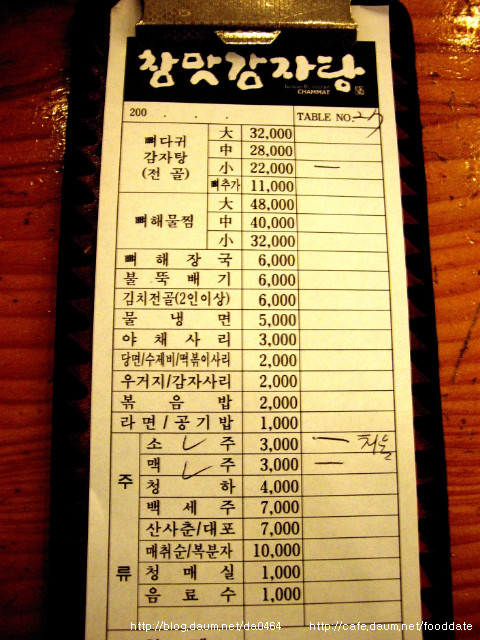 참맛감자탕
CHAMMAT
200 . . . TABLE NO. 25
뼈다귀 감자탕 (전 골) 大 32,000
中 28,000
小 22,000 一
뼈추가 11,000
뼈해물찜 大 48,000
中 40,000
小 32,000
뼈 해 장 국 6,000
불 뚝 배 기 6,000
김치전골(2인이상) 6,000
물 냉 면 5,000
야 채 사 리 3,000
당면/수제비/떡볶이사리 2,000
우거지/감자사리 2,000
볶 음 밥 2,000
라 면 / 공 기 밥 1,000
주 류
소 주 3,000 一 처음
맥 주 3,000 一
청 하 4,000
백 세 주 7,000
산사춘/대포 7,000
매취순/복분자 10,000
청 매 실 1,000
음 료 수 1,000
http://blog.daum.net/da0464 http://cafe.daum.net/fooddate